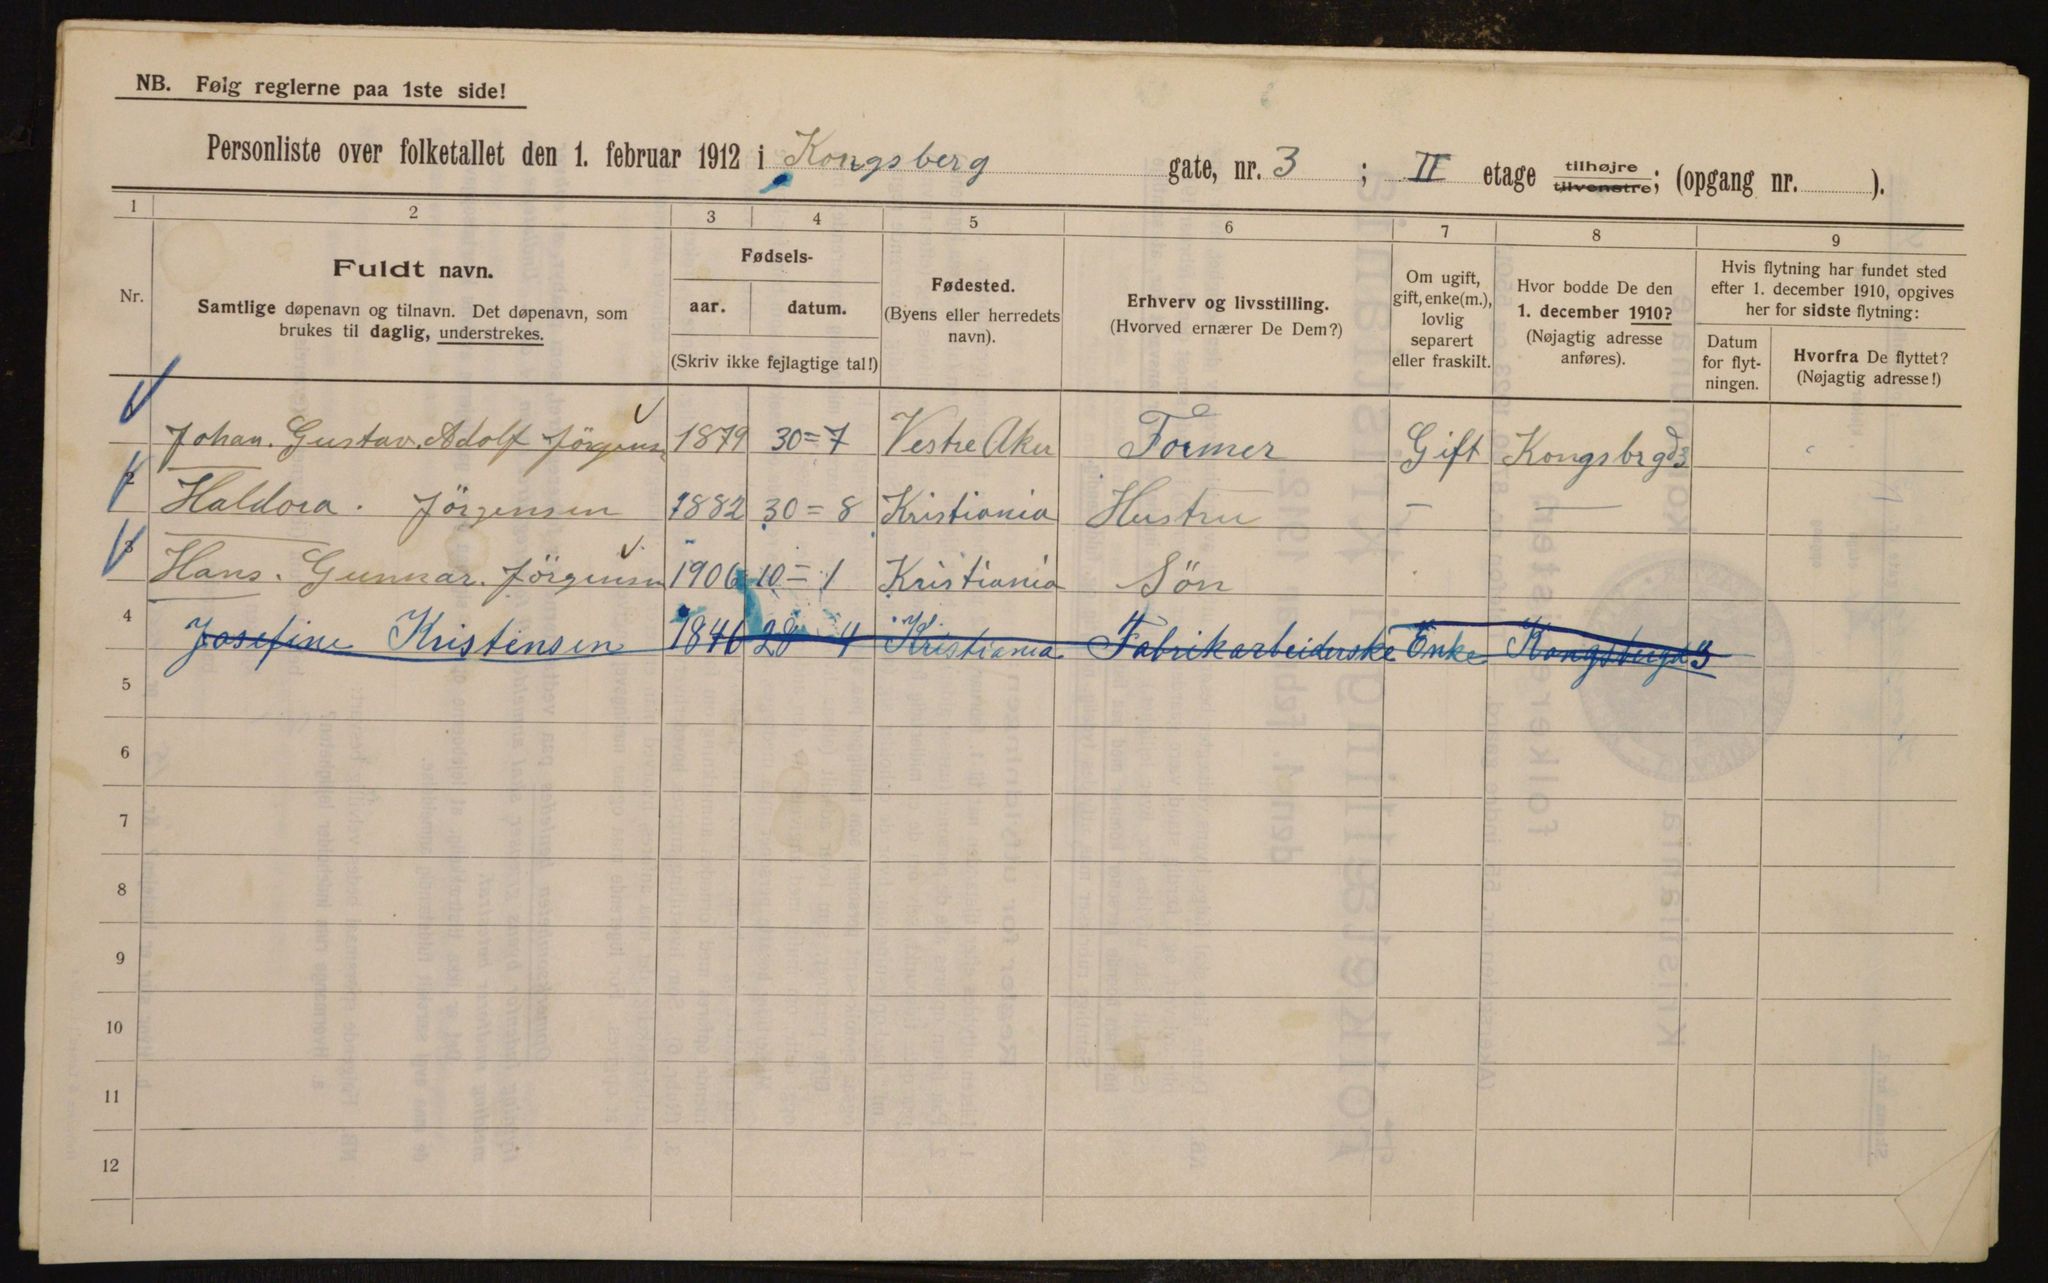 NB. Følg reglerne paa 1ste side!
Personliste over folketallet den 1. februar 1912 i Kongsberg gate, nr. 3 ; II etage tilhøjre tilvenstre; (opgang nr. ).
1 2 3 4 5 6 7 8 9
Nr.
Fuldt navn.
Samtlige døpenavn og tilnavn. Det døpenavn, som
brukes til daglig, understrekes.
Fødsels-
aar. datum.
(Skriv ikke fejlagtige tal!)
Fødested.
(Byens eller herredets
navn).
Erhverv og livsstilling.
(Hvorved ernærer De Dem?)
Om ugift,
gift, enke(m.),
lovlig
separert
eller fraskilt.
Hvor bodde De den
1. december 1910?
(Nøjagtig adresse
anføres).
Hvis flytning har fundet sted
efter 1. december 1910, opgives
her for sidste flytning:
Datum
for flyt-
ningen.
Hvorfra De flyttet?
(Nøjagtig adresse!)
Johan. Gustav. Adolf Jörgens 1879 30=7 Vestre Aker Former Gift Kongsbrgd 3
2 Haldora. Jörgensen 1882 30=8 Kristiania Hustru — —
3 Hans. Gunnar. Jörgensen 1906 10=1 Kristiania Sön
4 Josefine Kristensen 1846 28 4 Kristiania Fabrikarbeiderske Enke Kongsbergd 3
5
6
7
8
9
10
11
12